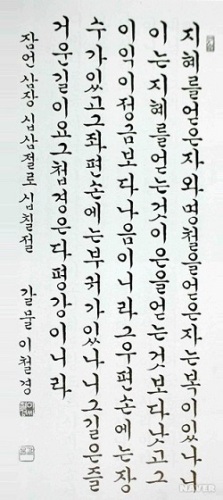 지혜를얻은자와명철을얻은자는복이있나니
이는지혜를얻는것이은을얻는것보다낫고그
이익이정금보다나음이니라그우편손에는장
수가있고그좌편손에는부귀가있나니그길은즐
거운길이요그첩경은다평강이니라
잠언 삼장 십삼절로 십칠절
갈물 이철경
NAVER